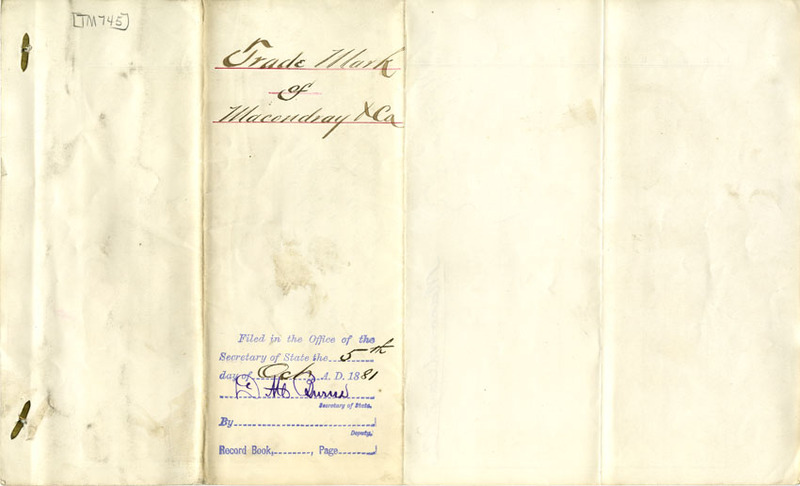 [TM745]
Trade Mark
of
Macondray & Co
Filed in the Office of the
Secretary of State the 5th
day of Oct A. D. 1881
D M Burns
Secretary of State.
By
Deputy.
Record Book, , Page